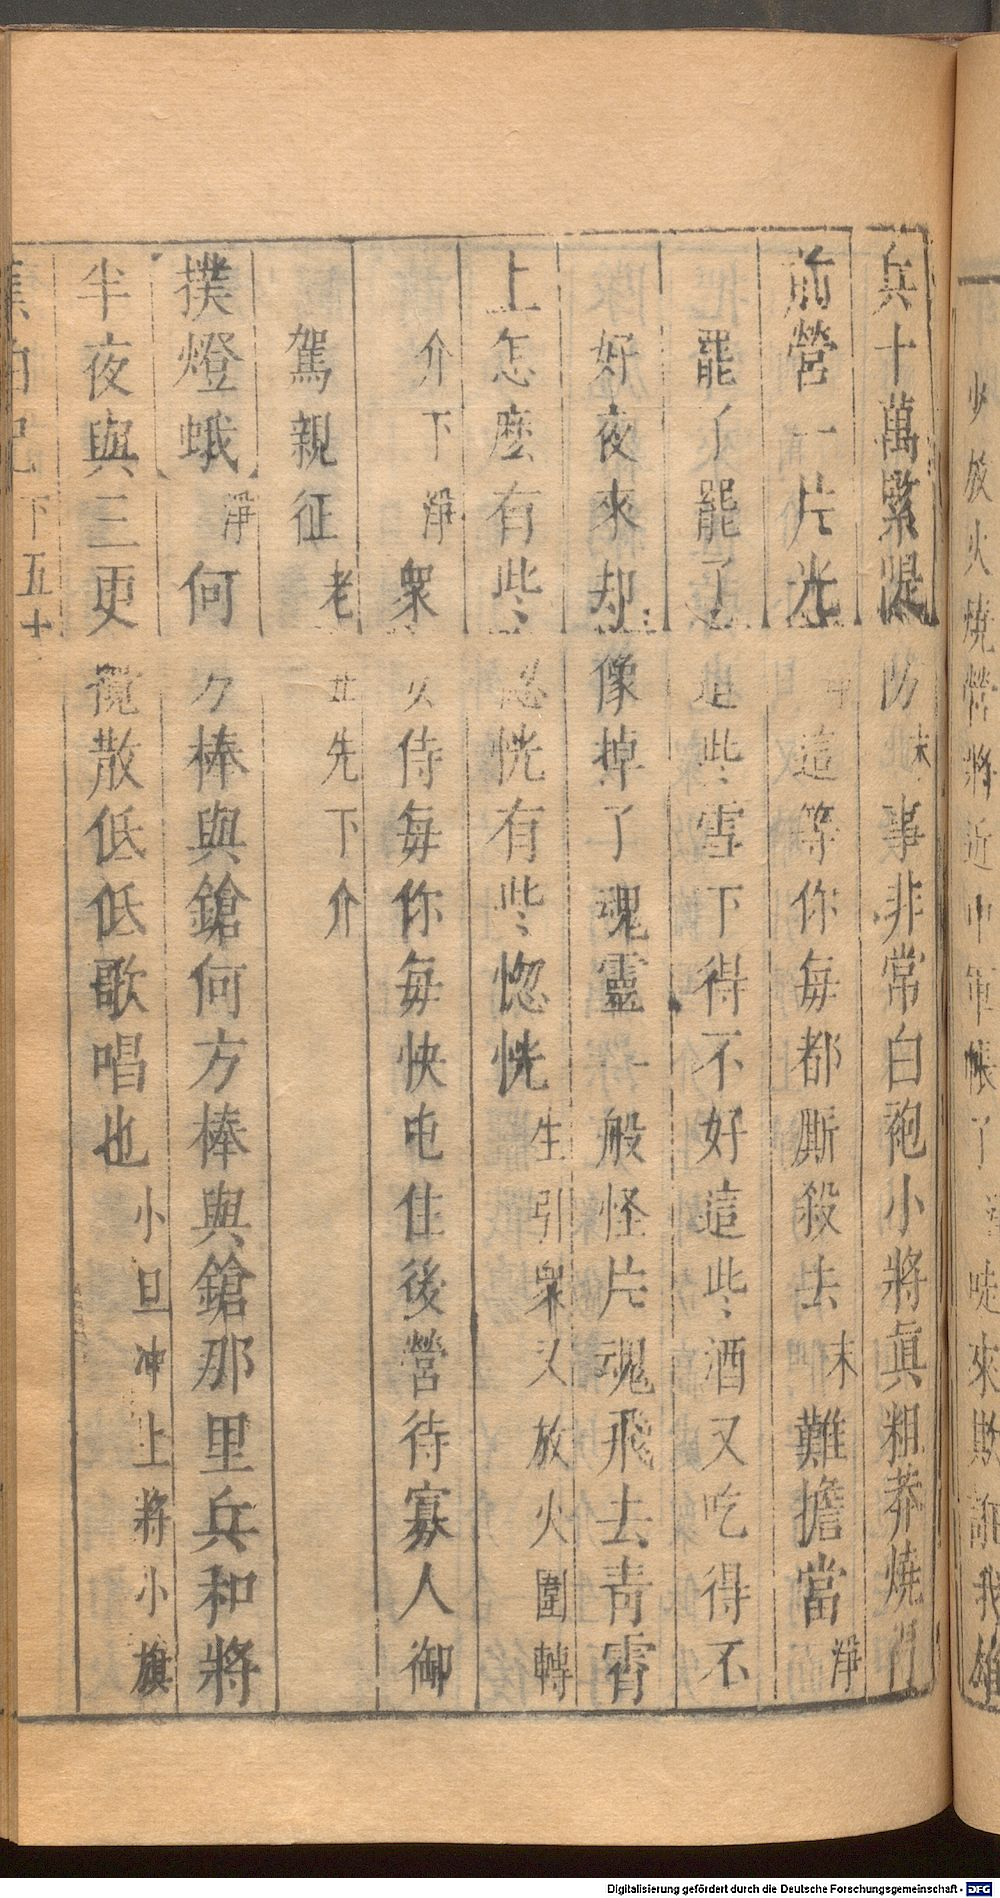 兵十萬緊隄防末事非常白袍小將眞粗莽燒
前營一片光這等你每都厮殺去末難擔當淨
罷了罷了這些雪下得不好這些酒又吃得不
好夜來却像掉了魂靈一般怪片魂飛去青霄
上怎麽有些惚恍有些惚恍生引衆又放火圍轉
介下淨衆侍每你每快屯住後營待寡人御
駕親征老先下介
撲燈蛾淨何方棒與鎗何方棒與鎗那里兵和將
半夜與三更攪散低低歌唱也小旦冲上將小旗
下五十
放火燒營將近中軍帳了來欺誑我
Digitalisierung gefördert durch die Deutsche Forschungsgemeinschaft - DFG